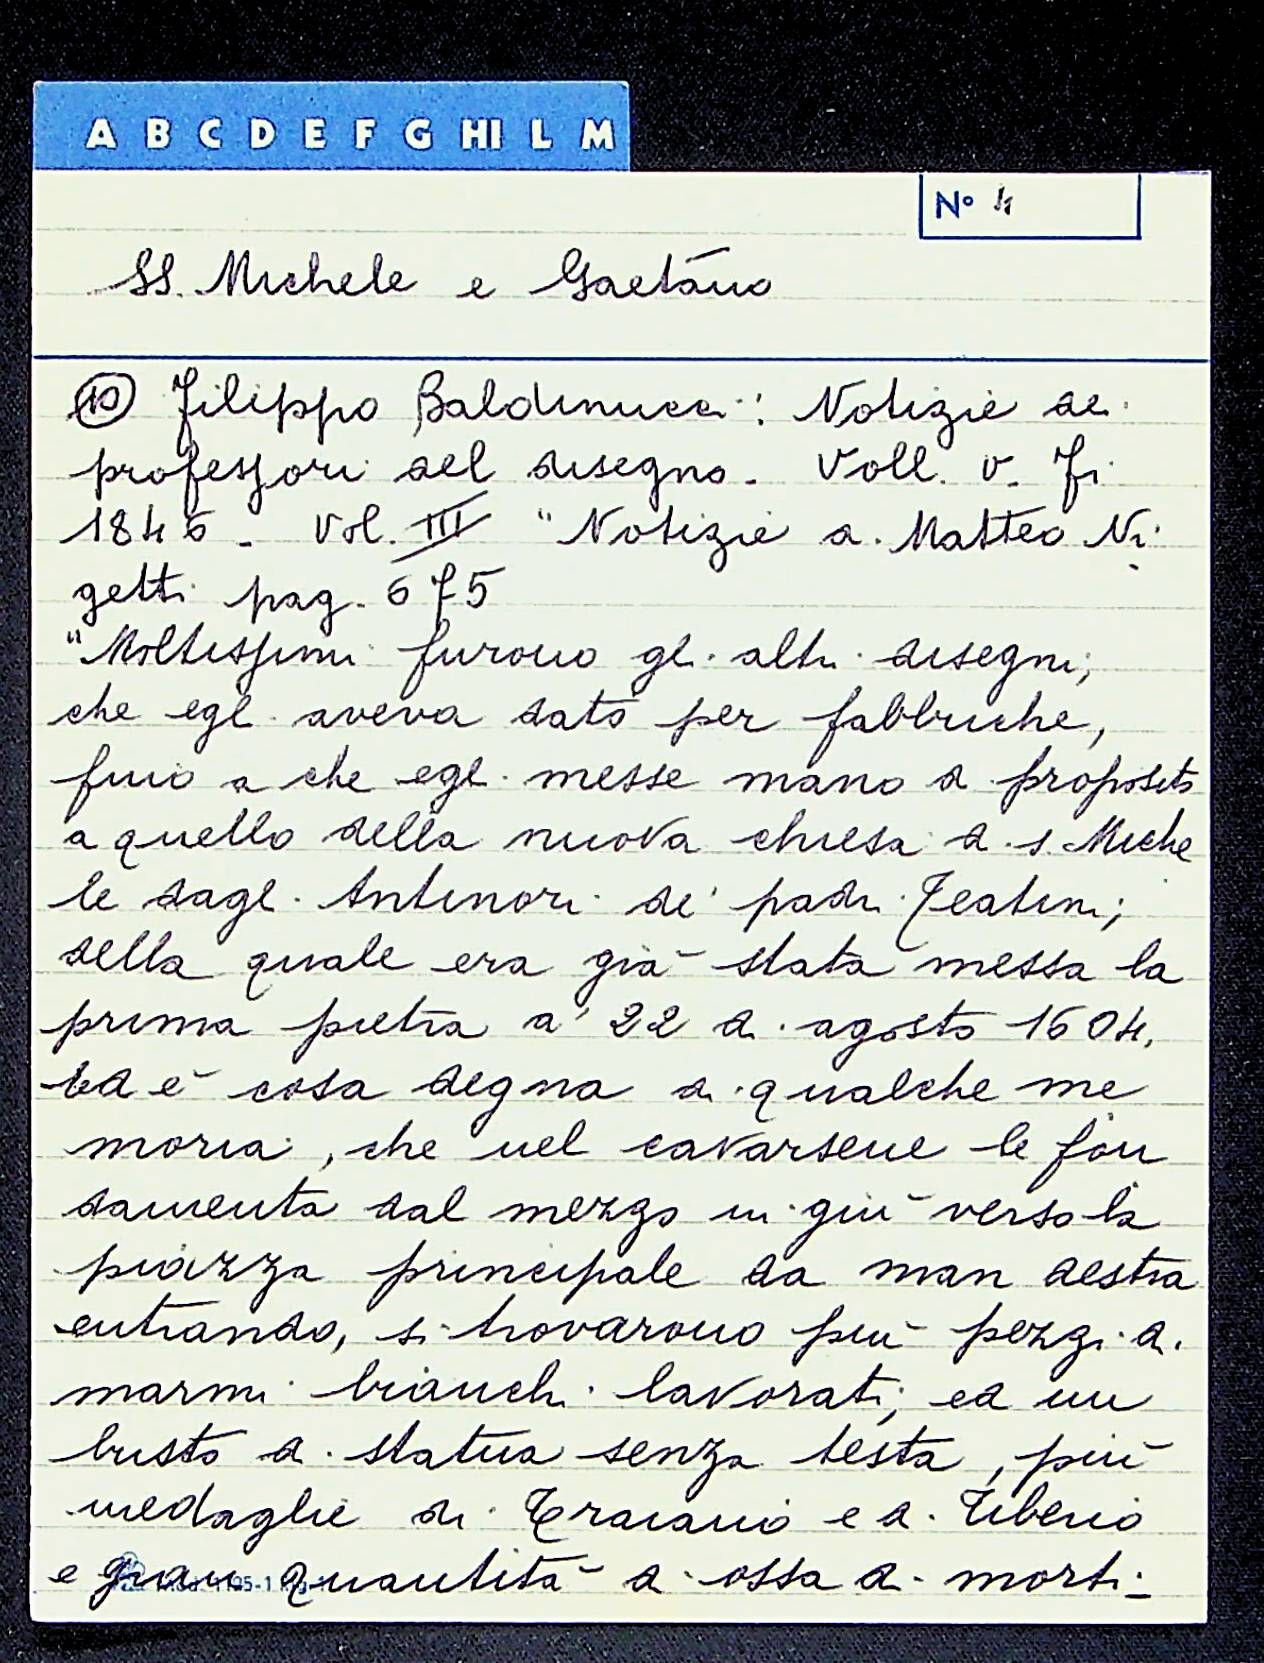 A B C D E F G HI L M
N° 4
SS. Michele e Gaetano
10 Filippo Baldinucci: Notizie dei
professori del disegno. Voll. V. Fi
1846 - Vol. III "Notizie di Matteo Ni
getti pag. 675
"Moltissimi furono gli altri disegni,
che egli aveva dato per fabbriche,
fino a che egli messe mano di proposito
a quello della nuova chiesa di s. Miche
le dagli Antinori de' padri Teatini;
della quale era già stata messa la
prima pietra a' 22 di agosto 1604.
Ed è cosa degna di qualche me
moria, che nel cavarsene le fon
damenta dal mezzo in giù verso la
piazza principale da man destra
entrando, si trovarono più pezzi di
marmi bianchi lavorati, ed un
busto di statua senza testa, più
medaglie di Traiano e di Tiberio
e gran quantità di ossa di morti -